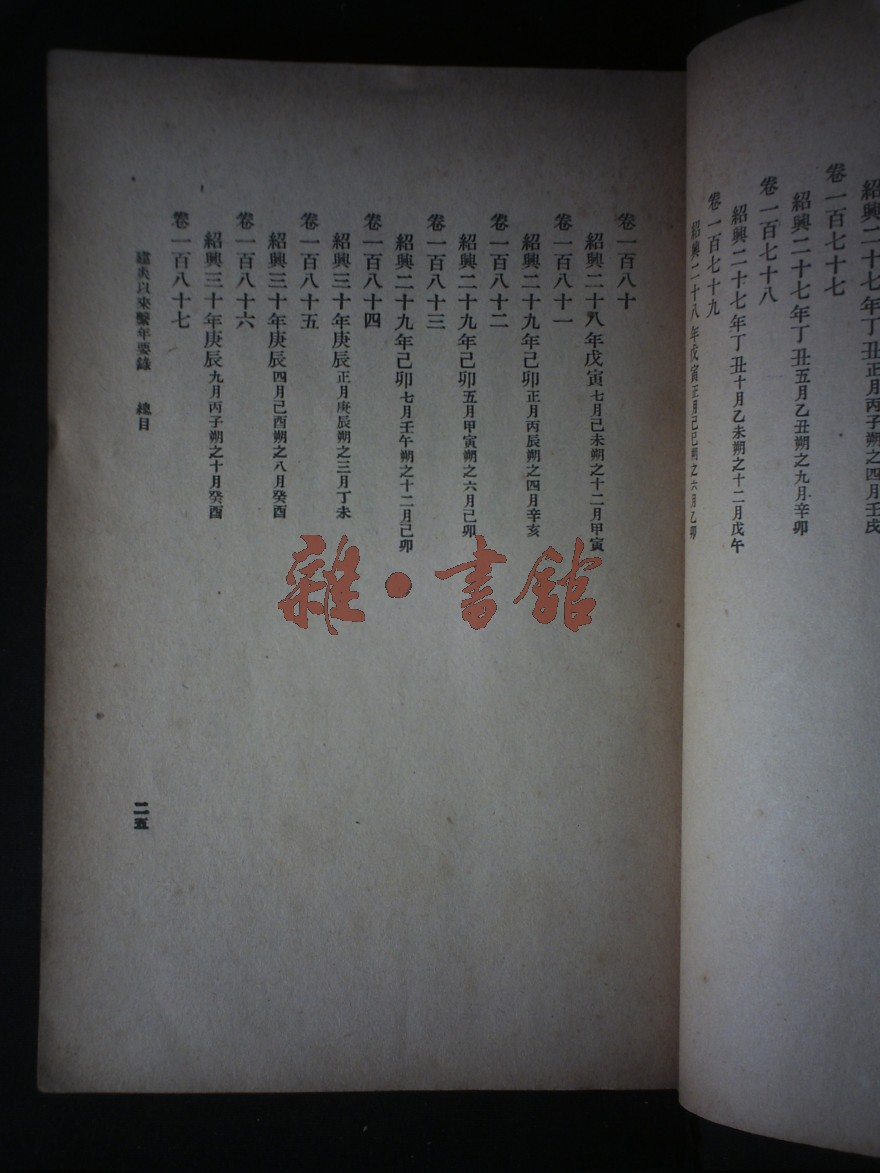 紹興二十七年丁丑正月丙子朔之四月壬戌
卷一百七十七
紹興二十七年丁丑五月乙丑朔之九月辛卯
卷一百七十八
紹興二十七年丁丑十月乙未朔之十二月戊午
卷一百七十九
紹興二十八年戊寅正月己巳朔之六月乙卯
卷一百八十
紹興二十八年戊寅七月己未朔之十二月甲寅
卷一百八十一
紹興二十九年己卯正月丙辰朔之四月辛亥
卷一百八十二
紹興二十九年己卯五月甲寅朔之六月己卯
卷一百八十三
紹興二十九年己卯七月壬午朔之十二月己卯
卷一百八十四
紹興三十年庚辰正月庚辰朔之三月丁未
卷一百八十五
紹興三十年庚辰四月己酉朔之八月癸酉
卷一百八十六
紹興三十年庚辰九月丙子朔之十月癸酉
卷一百八十七
建炎以來繫年要錄 總目
二五
雜·書館